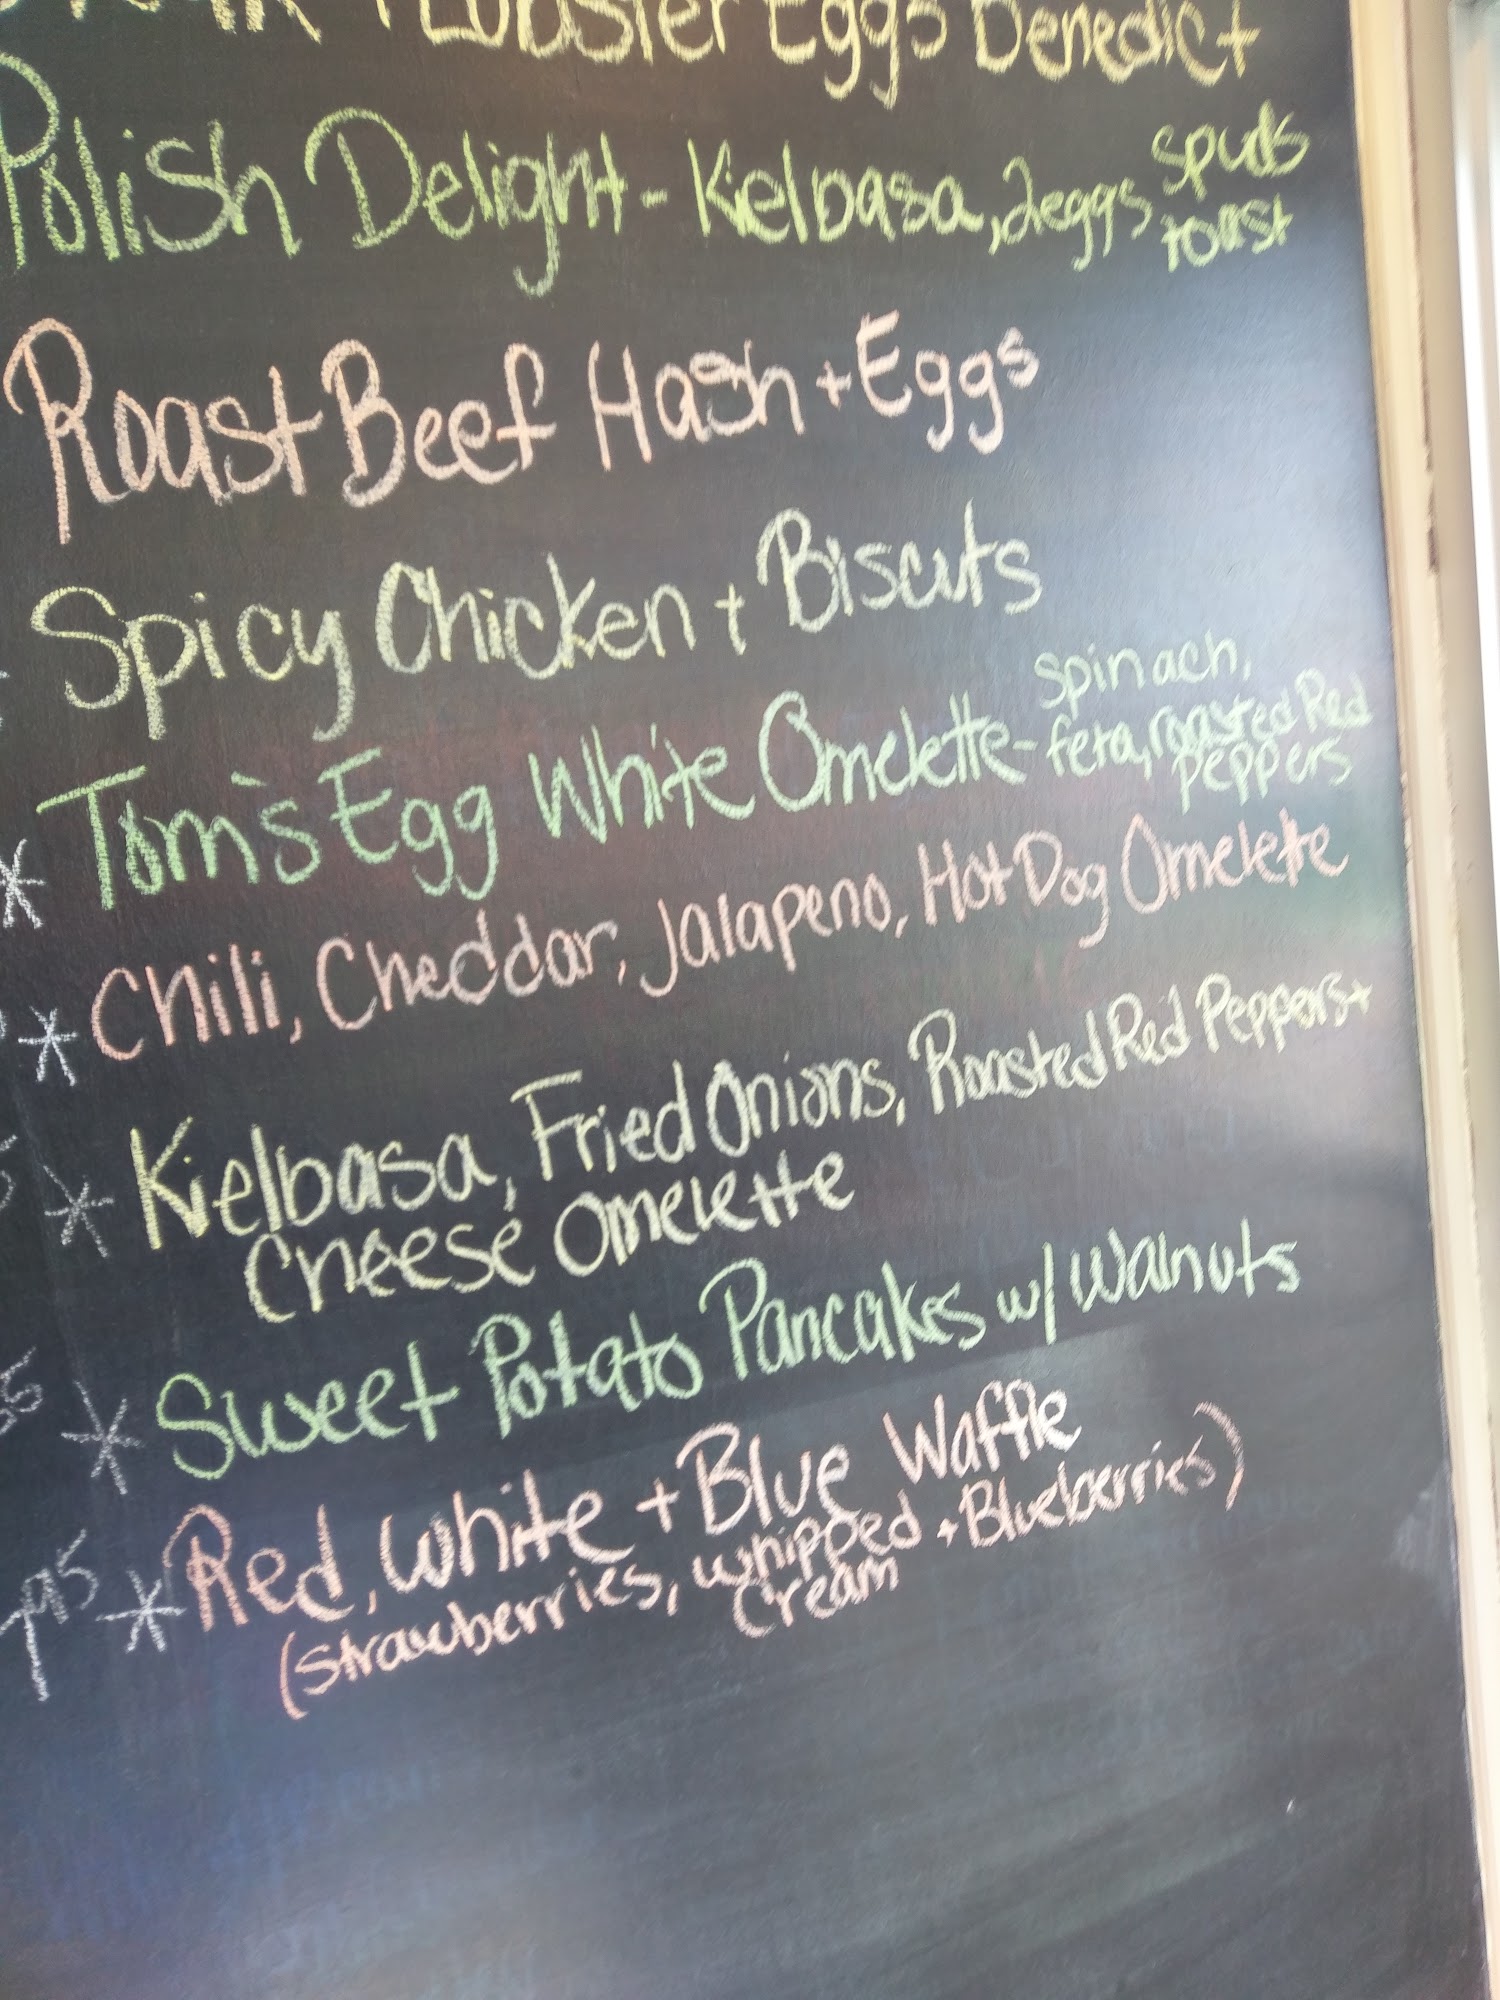 + Lobster Eggs Benedict
Polish Delight - Kielbasa, 2eggs spuds
toast
Roast Beef Hash + Eggs
Spicy Chicken + Biscuts
Tom's Egg White Omelette - spinach,
feta, roasted Red
peppers
* Chili, Cheddar, Jalapeno, Hot Dog Omelette
* Kielbasa, Fried Onions, Roasted Red Peppers +
Cheese Omelette
* Sweet Potato Pancakes w/ Walnuts
95 * Red, White + Blue Waffle
(Strawberries, whipped + Blueberries)
Cream